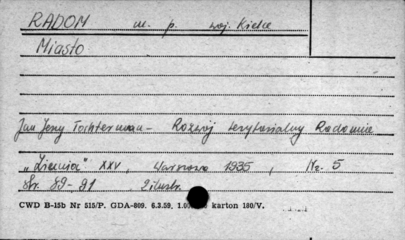 RADOM m. p. woj. Kielce
Miasto
Jan Jerzy Tochterman - Rozwój terytorialny Radomia
„Ziemia" XXV, Warszawa 1935, Nr. 5
Str. 89-91 2 ilustr.
CWD B-15b Nr 515/P. GDA-809. 6.3.59, 1.0 karton 180/V.